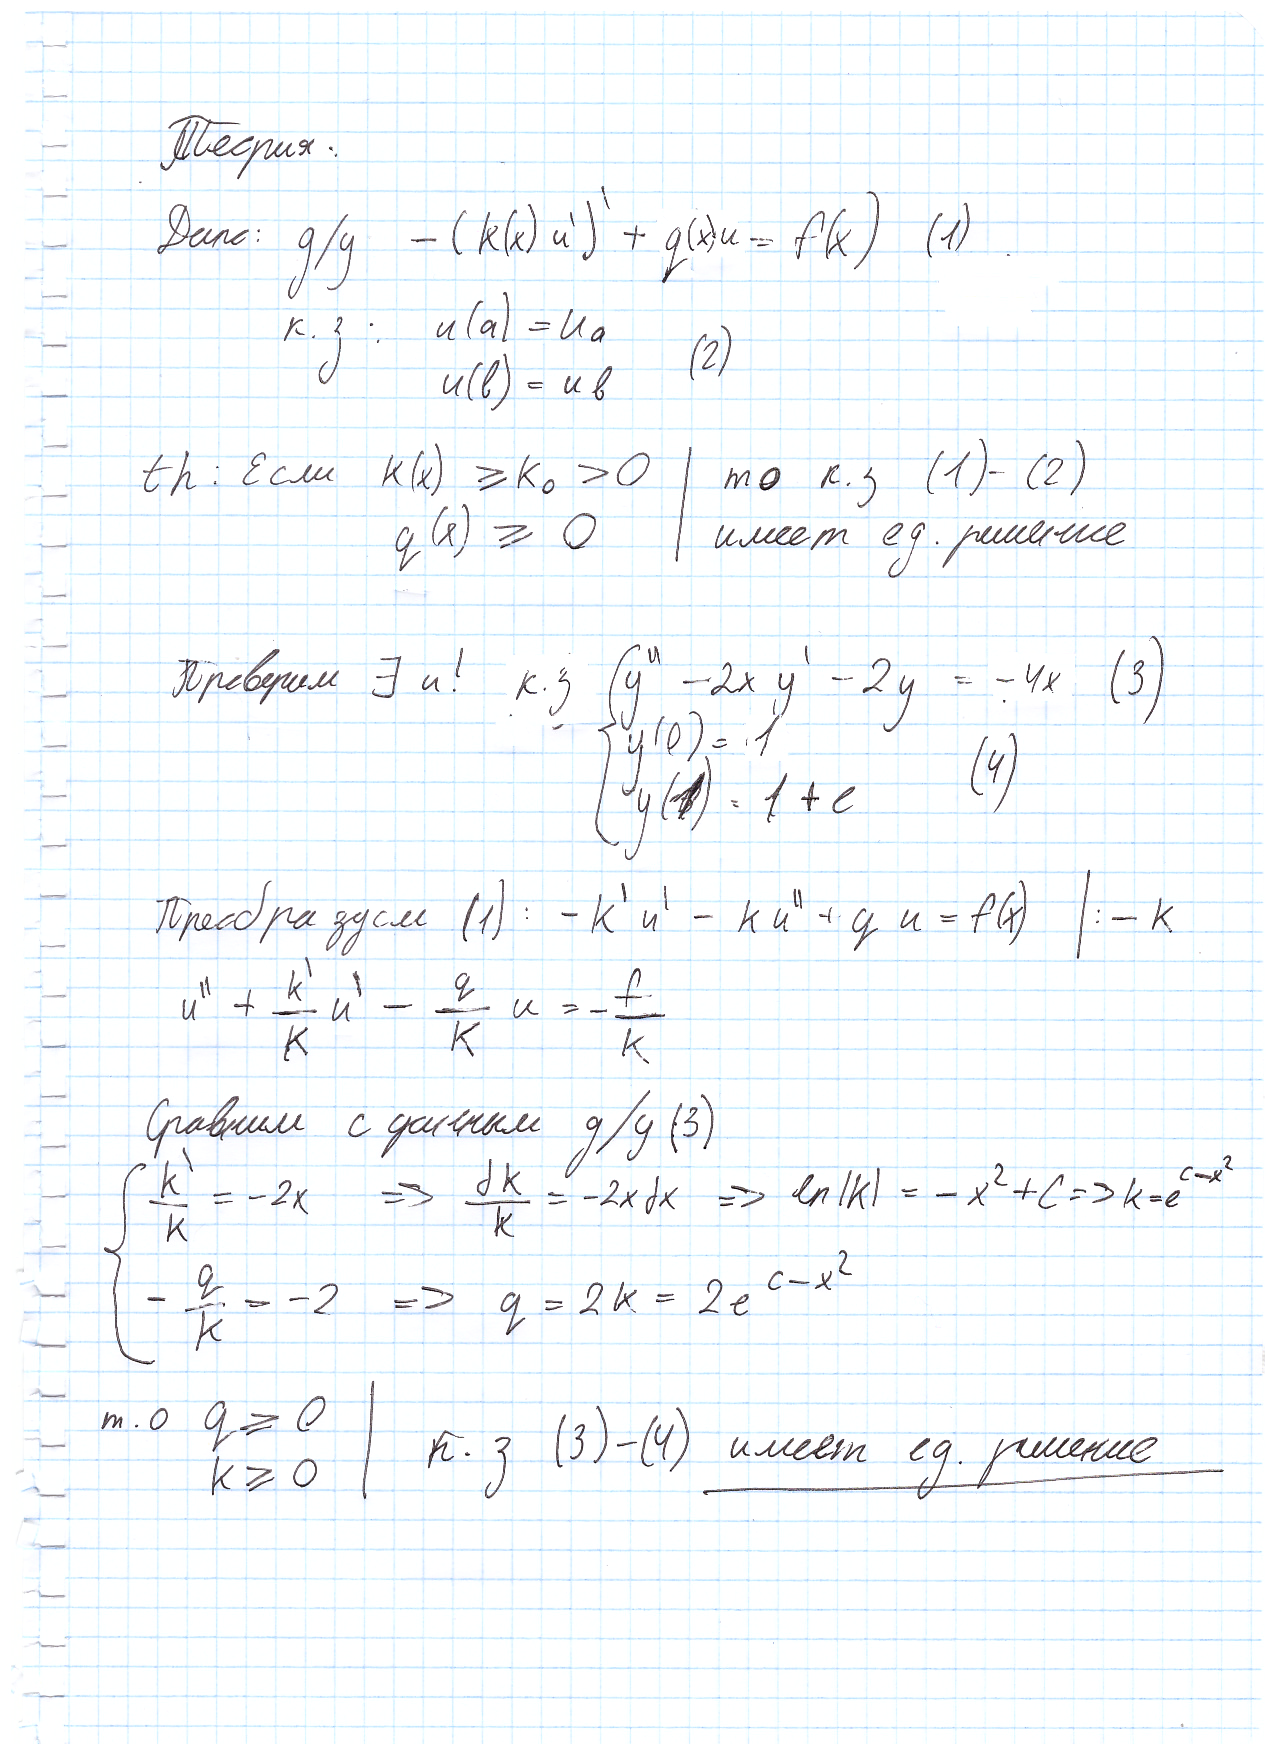 Теория:
Дано: д/у -(k(x)u')' + q(x)u = f(x) (1)
к.з: u(a) = ua
u(b) = ub (2)
th: Если k(x) ≥ k₀ > 0 | то к.з (1)-(2)
q(x) ≥ 0 | имеет ед. решение
Проверим ∃ и! к.з { y'' - 2xy' - 2y = -4x (3)
y(0) = 1
y(1) = 1 + e (4)
Преобразуем (1): -k'u' - ku'' + qu = f(x) | : -k
u'' + k'/k u' - q/k u = -f/k
Сравним с данным д/у (3)
{ k'/k = -2x => dk/k = -2xdx => ln|k| = -x² + C => k = e^(c-x²)
-q/k = -2 => q = 2k = 2e^(c-x²)
т.о q ≥ 0 | к.з (3)-(4) имеет ед. решение
k ≥ 0